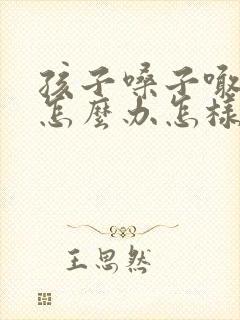 孩子嗓子嗷
怎麼办怎樣
王思然